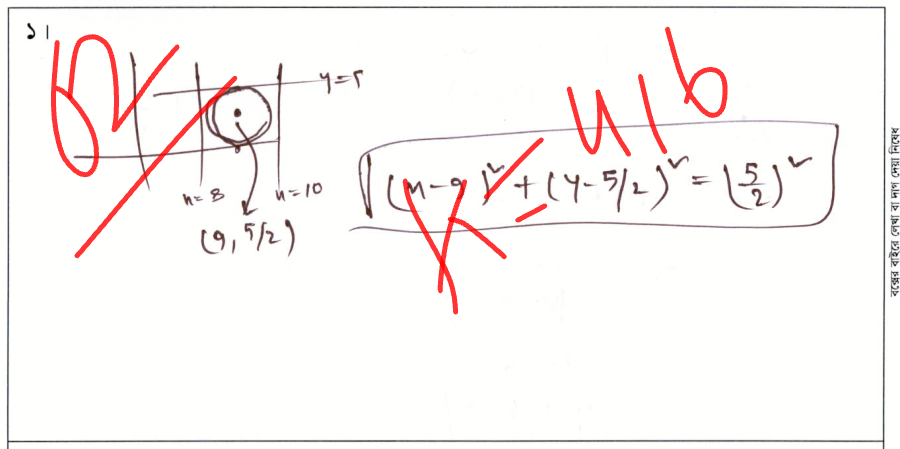 ১।
y=5
x=8 x=10
(9, 5/2)
(x-9)² + (y-5/2)² = (5/2)²
বক্সের বাইরে লেখা বা দাগ দেয়া নিষেধ